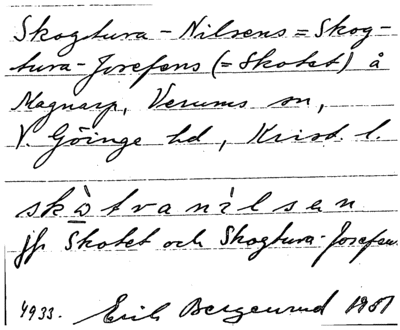 Skogtura-Nilsens = Skog-
tura-Josefens (= Skotet) å
Magnarp, Verums sn,
V. Göinge hd, Krist. l.
skὼtvanìlsen
jfr Skotet och Skogtura-Josefen.
4933. Erik Bergenrud 1981